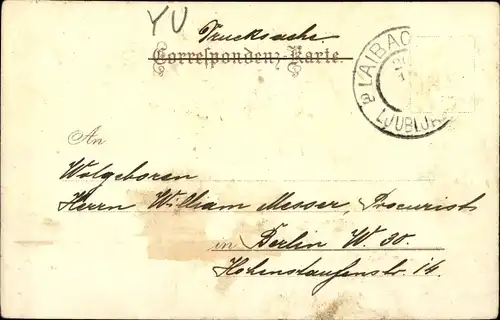 YU
Drucksache.
Correspondenz-Karte.
LAIBAC
LJUBLJA
An
Wolgeboren
Herrn William Messer, Procurist
in Berlin W. 30.
Hohenstaufenstr. 14.